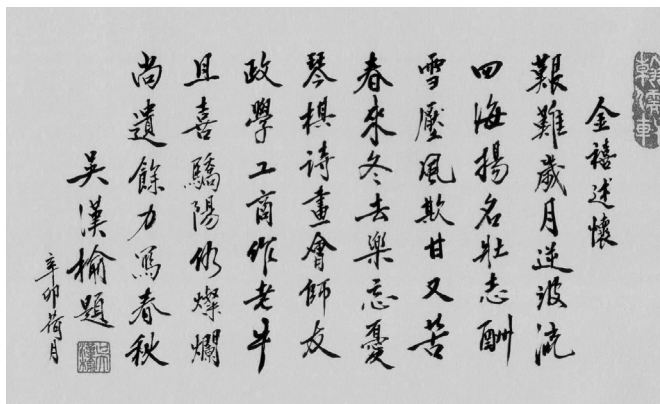 金禧述懷
艱難歲月逆波流
四海揚名壯志酬
雪壓風欺甘又苦
春來冬去樂忘憂
琴棋詩畫會師友
政學工商作老牛
且喜驕陽仍燦爛
尚遺餘力寫春秋
吳漢榆題
辛卯荷月